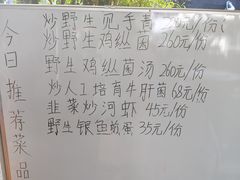 今日推荐菜品
炒野生见手青 元/份
炒野生鸡枞菌 260元/份
野生鸡枞菌汤 260元/份
炒人工培育牛肝菌 68元/份
韭菜炒河虾 45元/份
野生银鱼煎蛋 35元/份